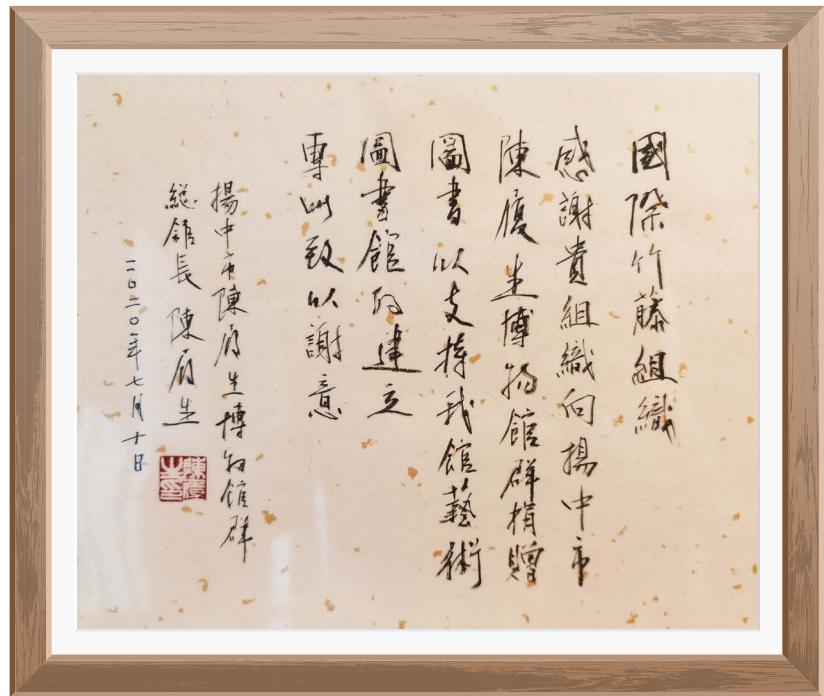 國際竹藤組織
感謝貴組織向揚中市
陳履生博物館群捐贈
圖書以支持我館藝術
圖書館的建立
專此致以謝意
揚中市陳履生博物館群
総館長 陳履生
二〇二〇年七月十日
陳履之印